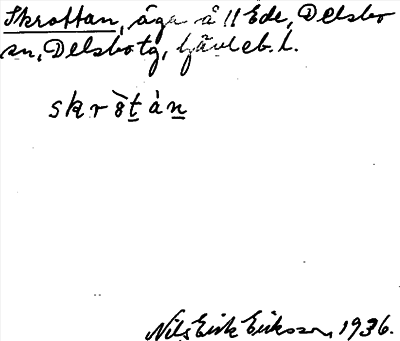 Skrottan, äga å 11 Ede, Delsbo
sn, Delsbo tg, Gävleb. l.
skròtàn
Nils Erik Eriksson, 1936.